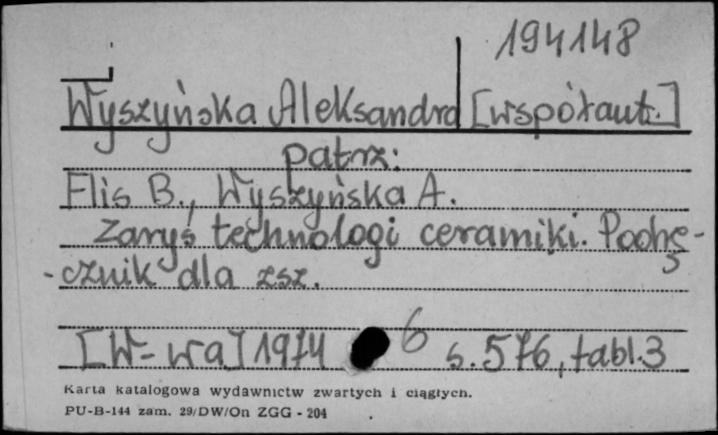 194148
Wyszyńska Aleksandra [współaut.]
patrz:
Flis B., Wyszyńska A.
Zarys technologi ceramiki. Podrę-
-cznik dla zsz.
[W-wa] 1974 6 s. 576, tabl. 3
Karta katalogowa wydawnictw zwartych i ciągłych.
PU-B-144 zam. 29/DW/On ZGG - 204